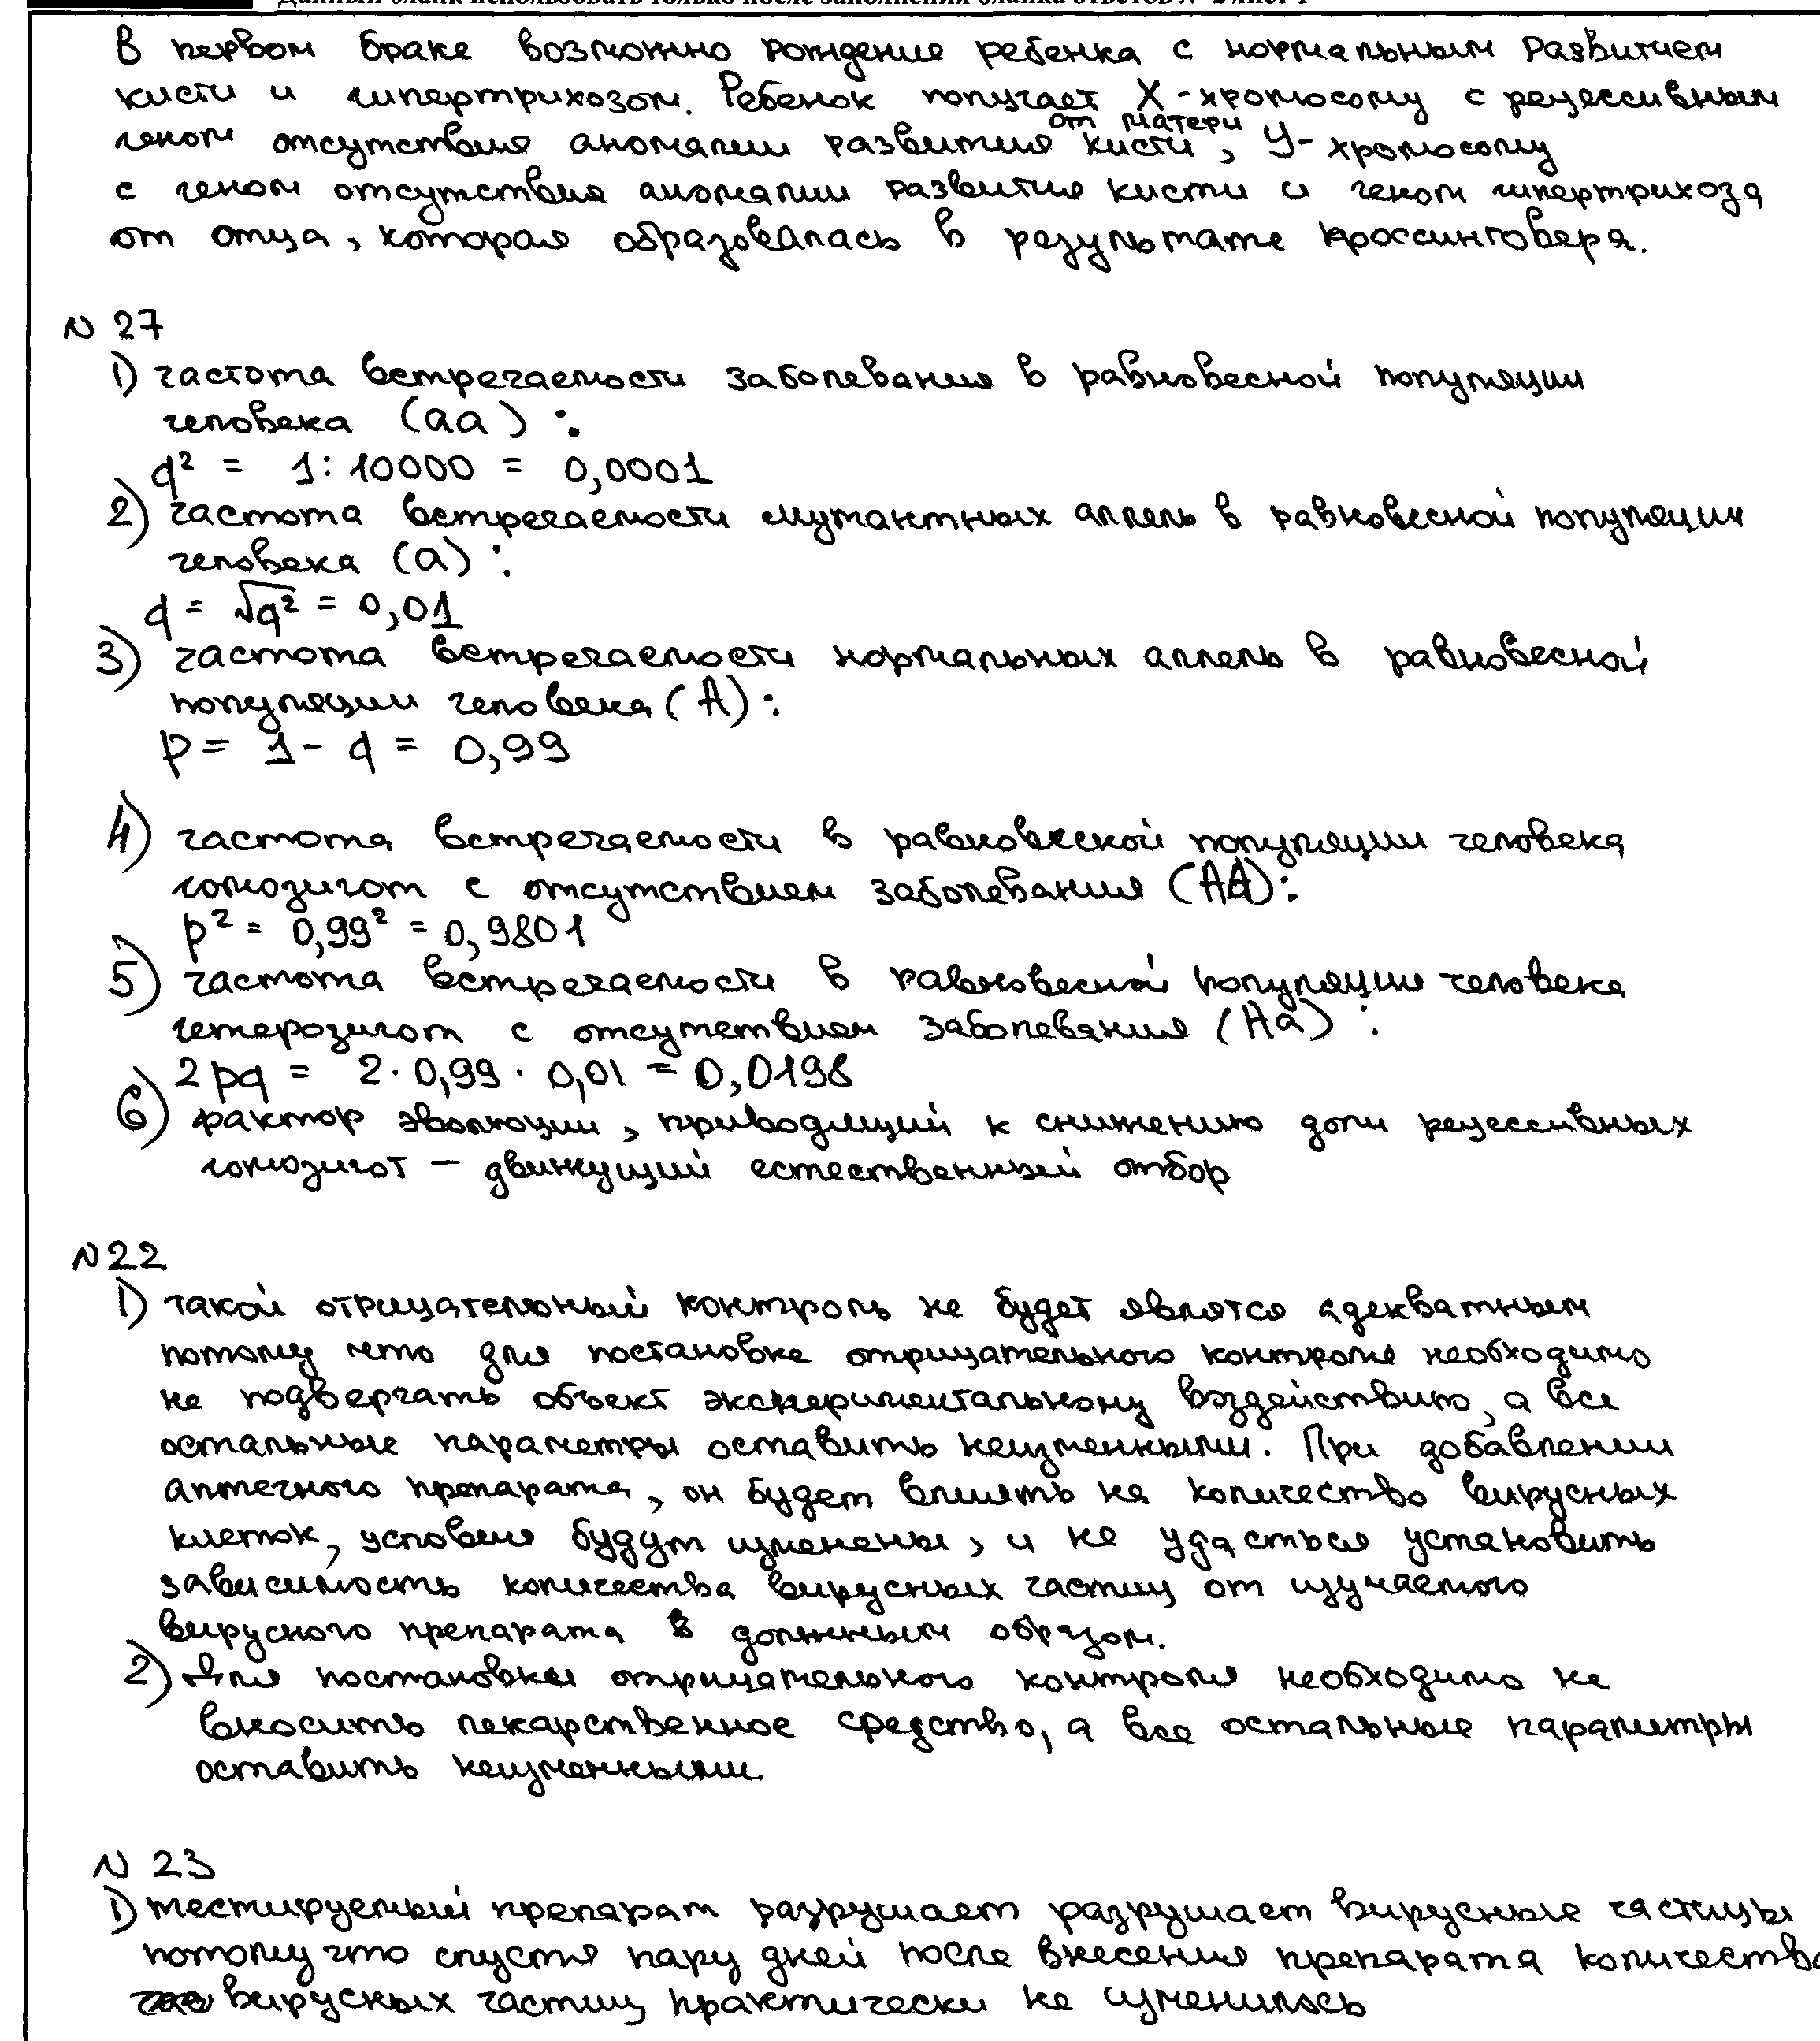 Данный бланк использовать только после заполнения бланка ответов № 2 лист 1
В первом браке возможно рождение ребенка с нормальным развитием
кисти и гипертрихозом. Ребенок получает X-хромосому с рецессивным
геном отсутствия аномалии развития кисти от матери, Y-хромосому
с геном отсутствия аномалии развития кисти и геном гипертрихоза
от отца, которая образовалась в результате кроссинговера.
N 27
1) частота встречаемости заболевания в равновесной популяции
человека (aa) :
q² = 1:10000 = 0,0001
2) частота встречаемости мутантных аллель в равновесной популяции
человека (a) :
q = √q² = 0,01
3) частота встречаемости нормальных аллель в равновесной
популяции человека (A) :
p = 1 - q = 0,99
4) частота встречаемости в равновесной популяции человека
гомозигот с отсутствием заболевания (AA) :
p² = 0,99² = 0,9801
5) частота встречаемости в равновесной популяции человека
гетерозигот с отсутствием заболевания (Aa) :
2pq = 2 · 0,99 · 0,01 = 0,0198
6) фактор эволюции, приводящий к снижению доли рецессивных
гомозигот – движущий естественный отбор
N 22
1) такой отрицательный контроль не будет являтся адекватным
потому что для постановке отрицательного контроля необходимо
не подвергать объект экспериментальному воздействию, а все
остальные параметры оставить неизменными. При добавлении
аптечного препарата, он будет влиять на количество вирусных
клеток, условия будут изменены, и не удасться установить
зависимость количества вирусных частиц от изучаемого
вирусного препарата должным образом.
2) Для постановки отрицательного контроля необходимо не
вносить лекарственное средство, а все остальные параметры
оставить неизменными.
N 23
1) тестируемый препарат разрушает разрушает вирусные частицы
потому что спустя пару дней после внесения препарата количество
вирусных частиц практически не изменилось